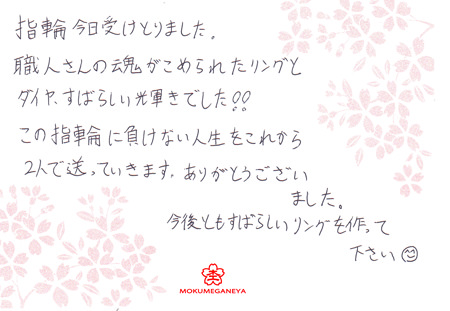 指輪今日受けとりました。
職人さんの魂がこめられたリングと
ダイヤ、すばらしい光輝きでした!!
この指輪に負けない人生をこれから
2人で送っていきます。ありがとうござい
ました。
今後ともすばらしいリングを作って
下さい
MOKUMEGANEYA